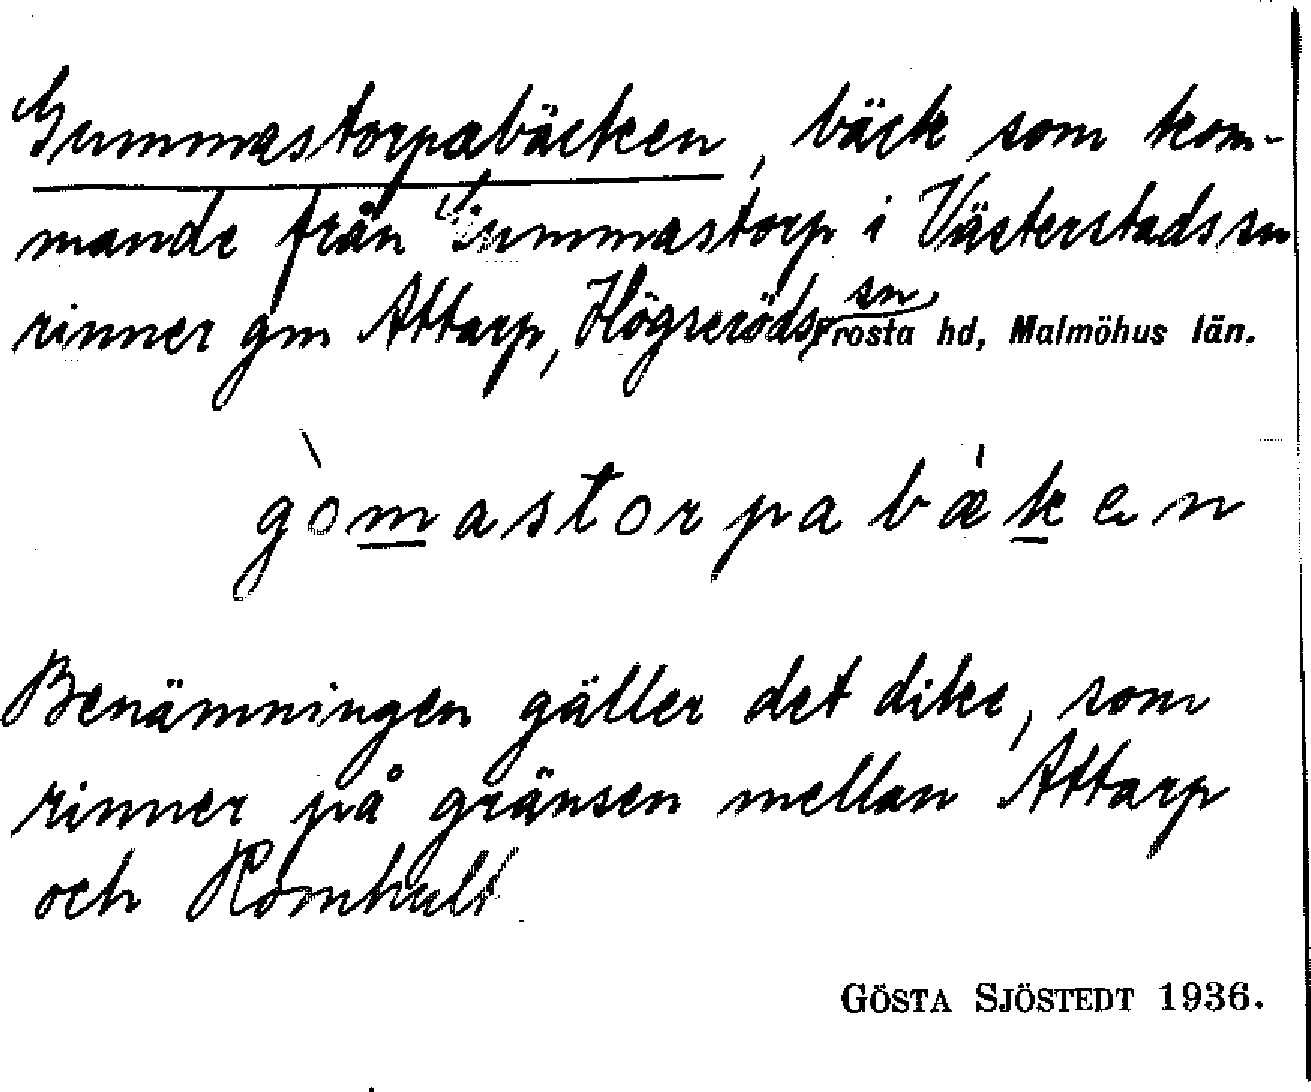 Gummastorpabäcken, bäck som kom-
mande från Gummastorp i Västerstads sn
rinner gm Attarp, Högseröds sn Frosta hd, Malmöhus län.
gòmastorpabæken
Benämningen gäller det dike, som
rinner på gränsen mellan Attarp
och Romhult
GÖSTA SJÖSTEDT 1936.